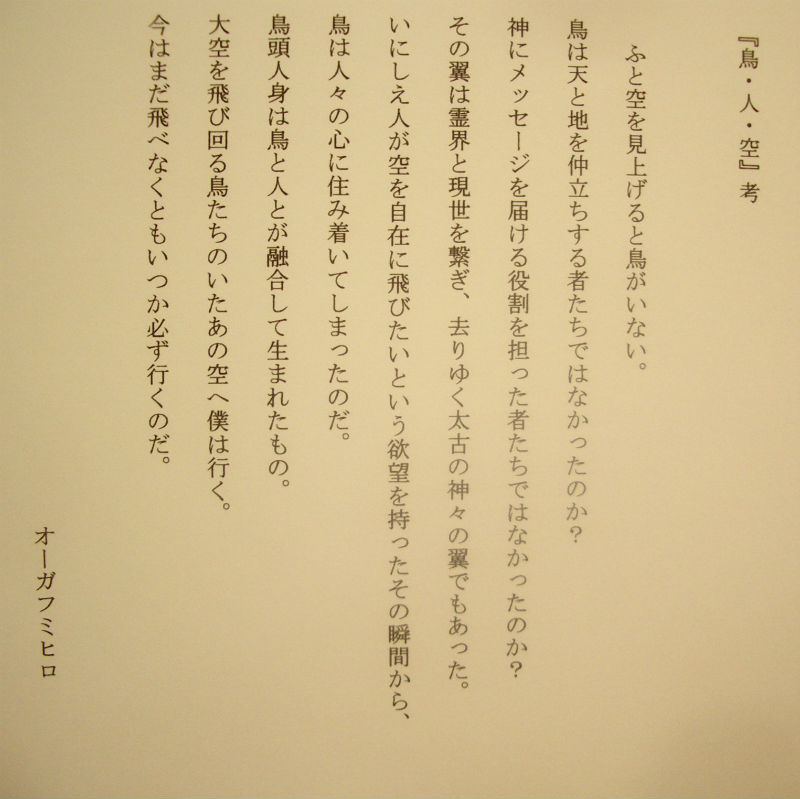 『鳥・人・空』考
ふと空を見上げると鳥がいない。
鳥は天と地を仲立ちする者たちではなかったのか？
神にメッセージを届ける役割を担った者たちではなかったのか？
その翼は霊界と現世を繋ぎ、去りゆく太古の神々の翼でもあった。
いにしえ人が空を自在に飛びたいという欲望を持ったその瞬間から、
鳥は人々の心に住み着いてしまったのだ。
鳥頭人身は鳥と人とが融合して生まれたもの。
大空を飛び回る鳥たちのいたあの空へ僕は行く。
今はまだ飛べなくともいつか必ず行くのだ。
オーガフミヒロ